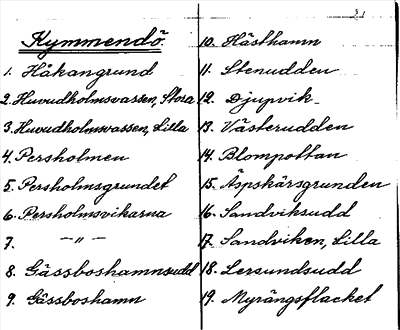 Kymmendö
1. Håkangrund
2. Huvudholmsvassen, Stora
3. Huvudholmsvassen, Lilla
4. Persholmen
5. Persholmsgrundet
6. Persholmsvikarna
7. -"-
8. Gässboshamnsudd
9. Gässboshamn
10. Hästhamn
11. Stenudden
12. Djupvik
13. Västerudden
14. Blompottan
15. Äspskärsgrunden
16. Sandviksudd
17. Sandviken, Lilla
18. Lersundsudd
19. Myrängsflacket